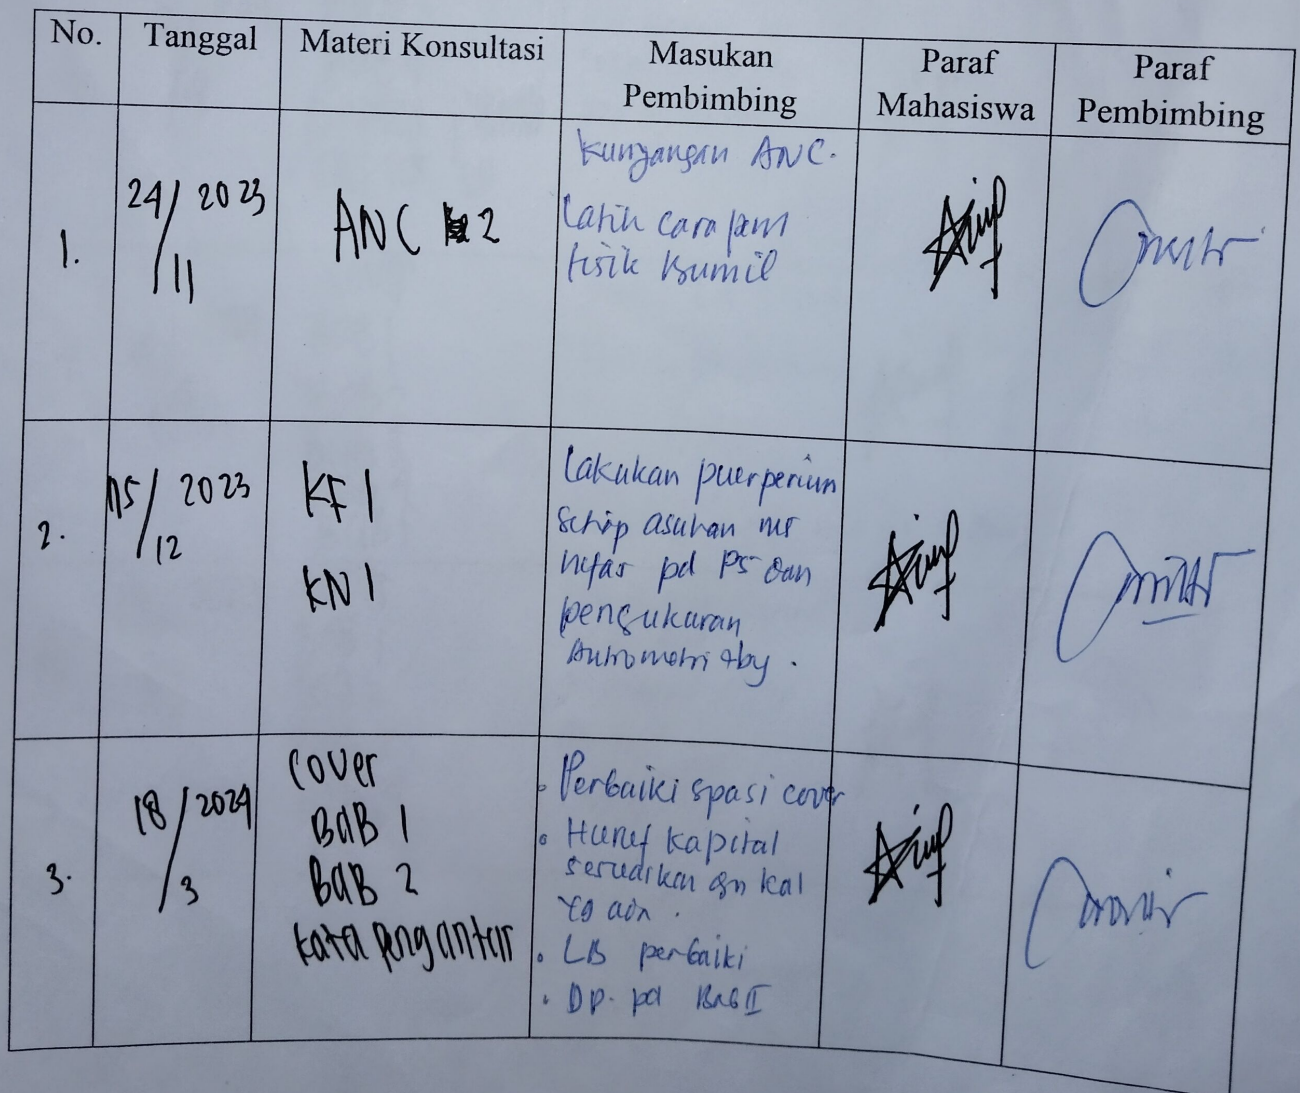 No. Tanggal Materi Konsultasi Masukan Pembimbing Paraf Mahasiswa Paraf Pembimbing
1.
24/11 2023
ANC 2
Kunjangan ANC.
Latih cara pem
fisik Bumil
2.
15/12 2023
KF 1
KN 1
Lakukan puerperium
Setiap asuhan
nifas pd PS dan
pengukuran
3.
18/3 2024
Cover
BAB 1
BAB 2
kata pengantar
Perbaiki spasi cover
Huruf kapital
sesuaikan dgn kal
yg
LB perbaiki
DP. pd Bab II